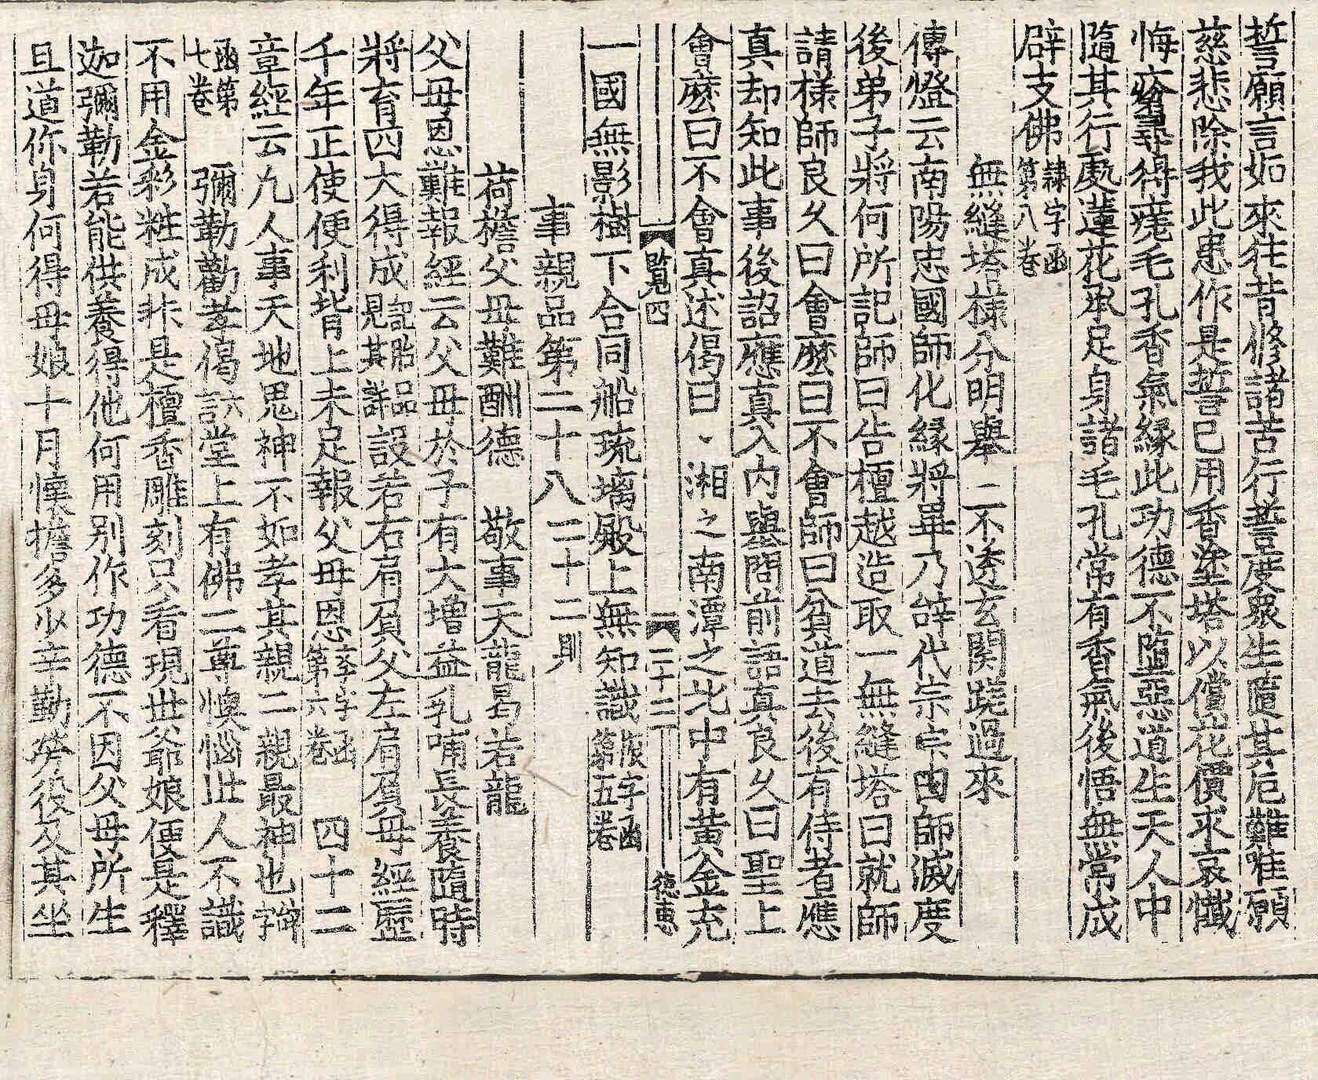 誓願言如來往昔修諸苦行誓度衆生匱其厄難唯願
慈悲除我此患作是誓已用香塗塔以償花價求哀懺
悔瘡尋得瘥毛孔香氣緣此功德不墮惡道生天人中
隨其行處蓮花承足身諸毛孔常有香氣後悟無常成
辟支佛隸字函第八卷
無縫塔樣分明舉 二不透玄關蹉過來
傳燈云南陽忠國師化緣將畢乃辝代宗宗曰師滅度
後弟子將何所記師曰告檀越造取一無縫塔曰就師
請樣師良久曰會麽曰不會師曰貧道去後有侍者應
真却知此事後詔應真入內擧問前語真良久曰聖上
會麽曰不會真述偈曰、湘之南潭之北中有黃金充
覽四 二十二 德惠
一國無影樹下合同船琉璃殿上無知識 字函第五卷
事親品第二十八 二十二則
荷擔父母難酬德 敬事天龍曷若龍
父母恩難報經云父母於子有大增益乳哺長養隨時
將育四大得成記胎品見其詳設若右肩負父左肩負母經歷
千年正使便利背上未足報父母恩 字函第六卷 四十二
章經云凡人事天地鬼神不如孝其親二親最神也 字
函第七卷 彌勒勸孝偈 堂上有佛二尊懊惱世人不識
不用金彩粧成非是檀香雕刻只看現世爺娘便是釋
迦彌勒若能供養得他何用別作功德不因父母所生
且道你身何得母娘十月懷擔多少辛勤勞役及其坐